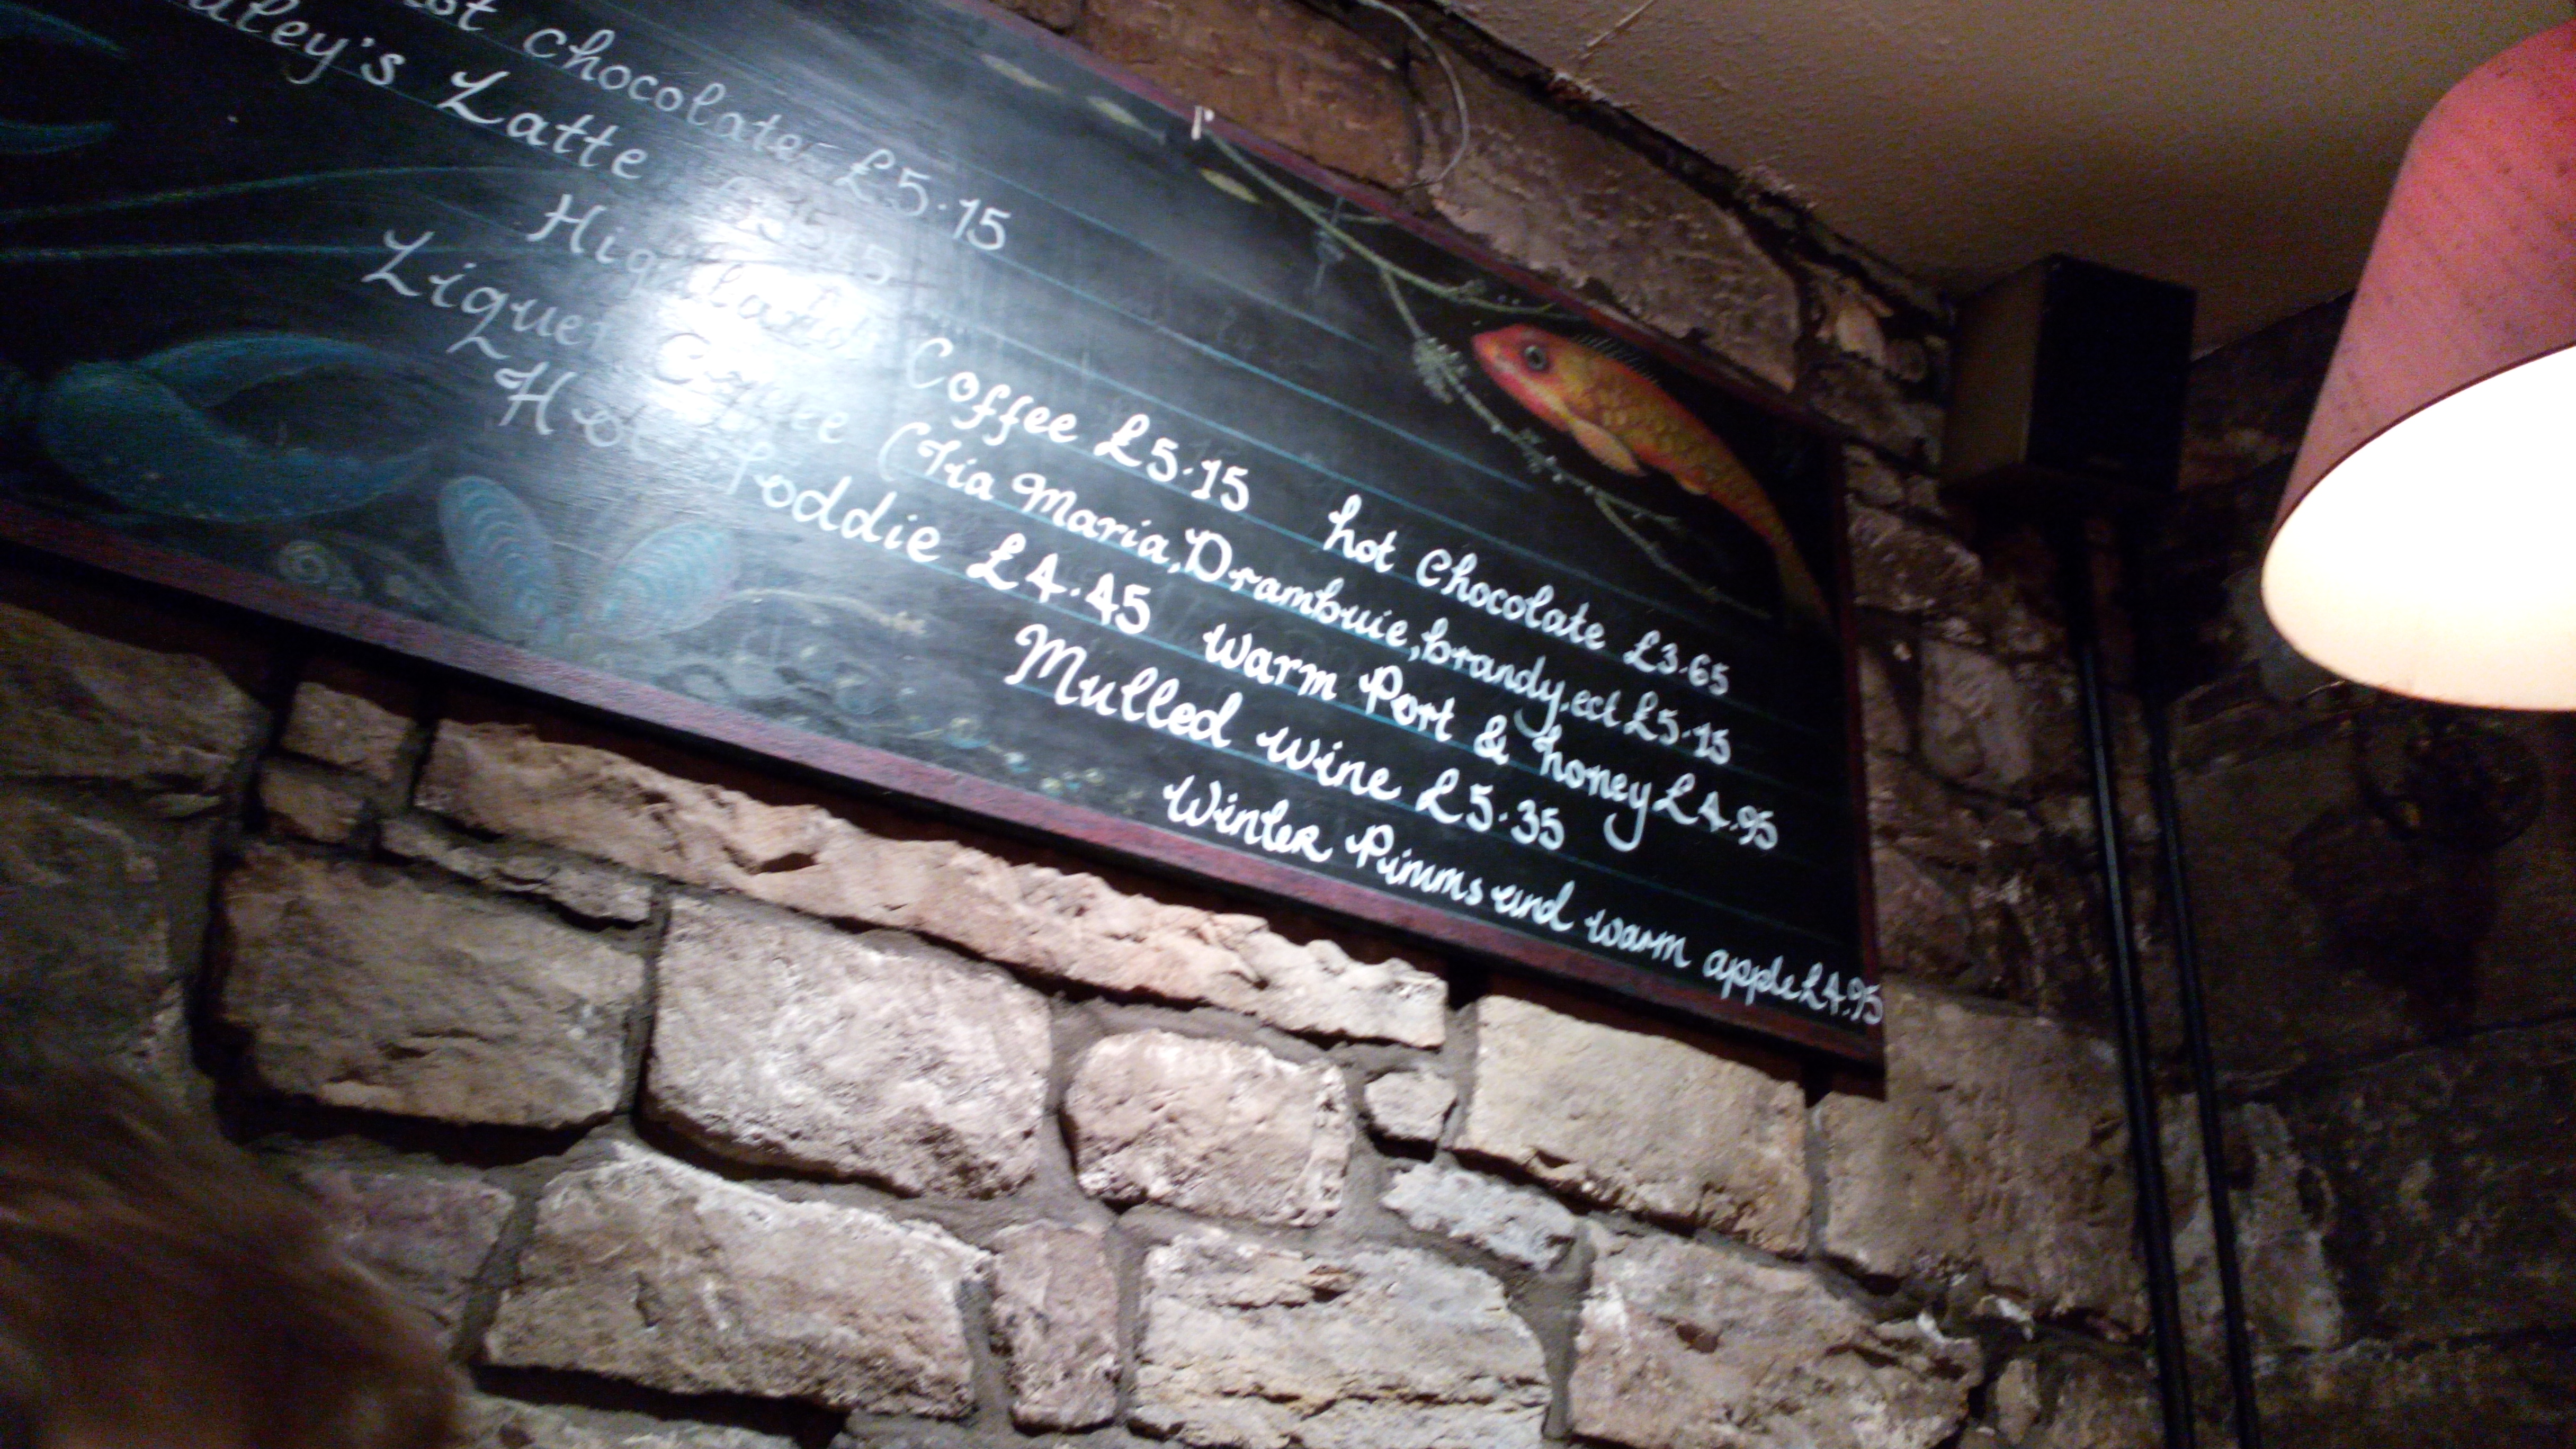 hot chocolate £5.15
Latte £5.15
Highland Coffee £5.15 hot chocolate £3.65
Liqueur Coffee (Tia Maria, Drambuie, brandy.ect £5.15
Hot Toddie £4.45 warm Port & honey £4.95
Mulled wine £5.35
Winter Pimms and warm apple £4.95